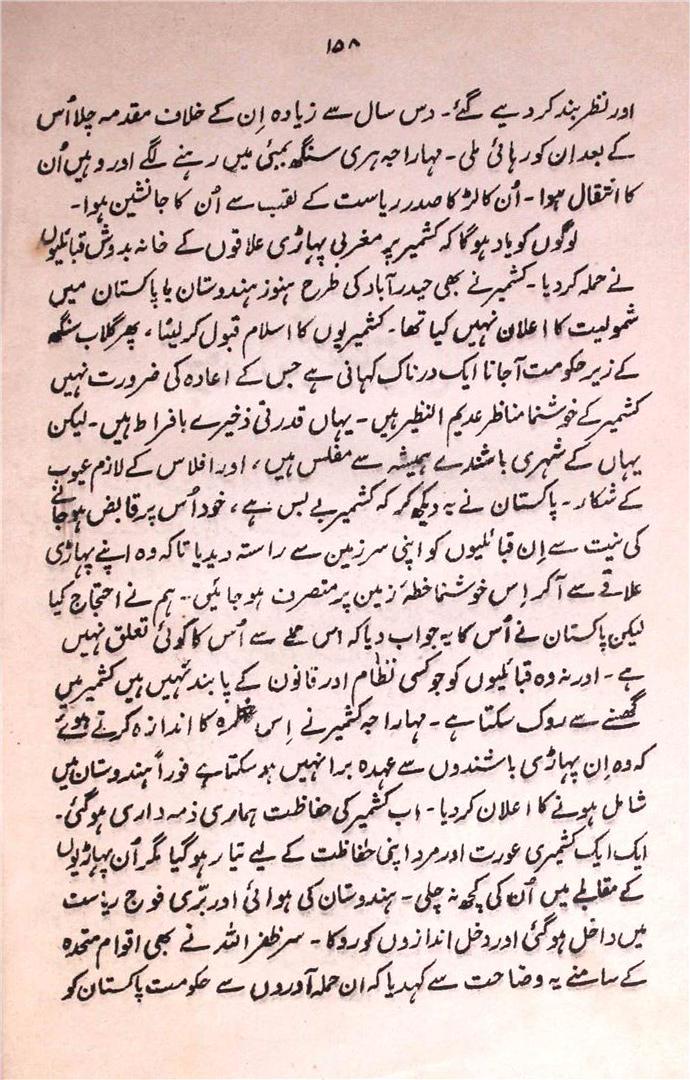 ۱۵۸
اور نظر بند کر دیے گئے۔ دس سال سے زیادہ اِن کے خلاف مقدمہ چلا اُس
کے بعد ان کو رہائی ملی۔ مہاراجہ ہری سنگھ بمبئی میں رہنے لگے اور وہیں اُن
کا انتقال ہوا۔ اُن کا لڑکا صدر ریاست کے لقب سے اُن کا جانشین ہوا۔
لوگوں کو یاد ہوگا کہ کشمیر پر مغربی پہاڑی علاقوں کے خانہ بدوش قبائلیوں
نے حملہ کر دیا۔ کشمیر نے بھی حیدرآباد کی طرح ہنوز ہندوستان یا پاکستان میں
شمولیت کا اعلان نہیں کیا تھا۔ کشمیریوں کا اسلام قبول کر لینا، پھر گلاب سنگھ
کے زیر حکومت آجانا ایک دردناک کہانی ہے جس کے اعادہ کی ضرورت نہیں
کشمیر کے خوشنما مناظر عدیم النظیر ہیں۔ یہاں قدرتی ذخیرے بافراط ہیں۔ لیکن
یہاں کے شہری باشندے ہمیشہ سے مفلس ہیں، اور افلاس کے لازم عیوب
کے شکار۔ پاکستان نے یہ دیکھ کر کہ کشمیر بے بس ہے، خود اُس پر قابض ہو جانے
کی نیت سے اِن قبائلیوں کو اپنی سرزمین سے راستہ دیدیا تاکہ وہ اپنے پہاڑی
علاقے سے آکر اِس خوشنما خطۂ زمین پر متصرف ہو جائیں۔ ہم نے احتجاج کیا
لیکن پاکستان نے اُس کا یہ جواب دیا کہ اس حملے سے اُس کا کوئی تعلق نہیں
ہے۔ اور نہ وہ قبائلیوں کو جو کسی نظام اور قانون کے پابند نہیں ہیں کشمیر میں
گھسنے سے روک سکتا ہے۔ مہاراجہ کشمیر نے اِس خطرہ کا اندازہ کرتے ہوئے
کہ وہ اِن پہاڑی باشندوں سے عہدہ برا نہیں ہو سکتا ہے فوراً ہندوستان میں
شامل ہونے کا اعلان کر دیا۔ اب کشمیر کی حفاظت ہماری ذمہ داری ہوگئی۔
ایک ایک کشمیری عورت اور مرد اپنی حفاظت کے لیے تیار ہو گیا مگر اُن پہاڑیوں
کے مقابلے میں اُن کی کچھ نہ چلی۔ ہندوستان کی ہوائی اور برّی فوج ریاست
میں داخل ہوگئی اور دخل اندازوں کو روکا۔ سر ظفر اللہ نے بھی اقوام متحدہ
کے سامنے یہ وضاحت سے کہدیا کہ ان حملہ آوروں سے حکومت پاکستان کو